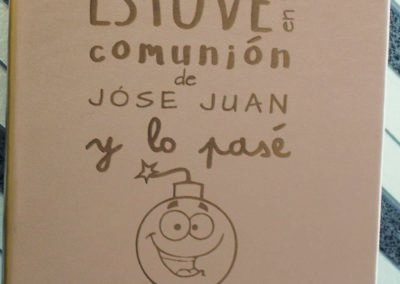 ESTUVE en
comunión
de
JÓSE JUAN
y lo pasé